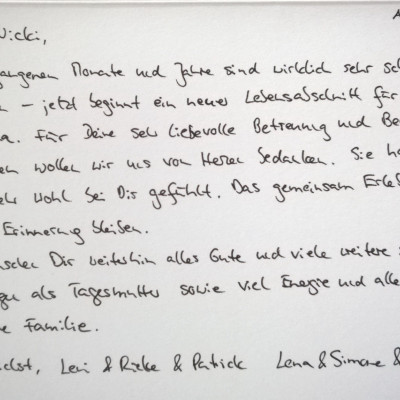 A
Vicki,
angenen Monate und Jahre sind wirklich sehr sc
n – jetzt beginnt ein neuer Lebensabschnitt für
a. Für Deine sehr liebevolle Betreuung und Be
en wollen wir uns von Herzen bedanken. Sie ha
ehr wohl bei Dir gefühlt. Das gemeinsam Erle
Erinnerung bleiben.
nschen Dir weiterhin alles Gute und viele weitere
als Tagesmutter sowie viel Energie und alle
e Familie.
chst, Leni & Rieke & Patrick Lena & Simone &